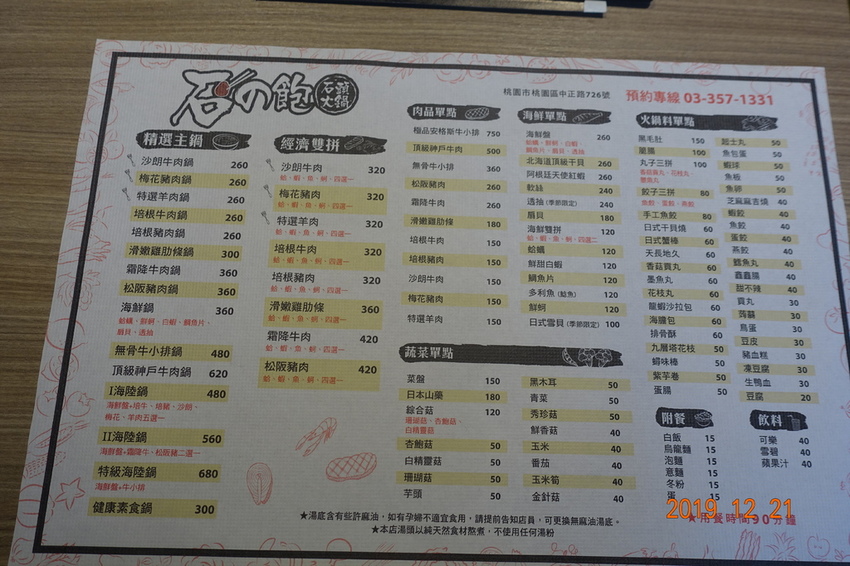 石の飽
石頭火鍋
桃園市桃園區中正路726號
預約專線 03-357-1331
精選主鍋
沙朗牛肉鍋 260
梅花豬肉鍋 260
特選羊肉鍋 260
培根牛肉鍋 260
培根豬肉鍋 260
滑嫩雞肋條鍋 300
霜降牛肉鍋 360
松阪豬肉鍋 360
海鮮鍋 360
蛤蠣、鮮蚵、白蝦、鯛魚片、
扇貝、透抽
無骨牛小排鍋 480
頂級神戶牛肉鍋 620
I海陸鍋 480
海鮮盤+培牛、培豬、沙朗、
梅花、羊肉五選一
II海陸鍋 560
海鮮盤+霜降牛、松阪豬二選一
特級海陸鍋 680
海鮮盤+牛小排
健康素食鍋 300
經濟雙拼
沙朗牛肉 320
蛤、蝦、魚、蚵、四選一
梅花豬肉 320
蛤、蝦、魚、蚵、四選一
特選羊肉 320
蛤、蝦、魚、蚵、四選一
培根牛肉 320
蛤、蝦、魚、蚵、四選一
培根豬肉 320
蛤、蝦、魚、蚵、四選一
滑嫩雞肋條 360
蛤、蝦、魚、蚵、四選一
霜降牛肉 420
蛤、蝦、魚、蚵、四選一
松阪豬肉 420
蛤、蝦、魚、蚵、四選一
肉品單點
極品安格斯牛小排 750
頂級神戶牛肉 500
無骨牛小排 360
松阪豬肉 260
霜降牛肉 260
滑嫩雞肋條 180
培根牛肉 150
培根豬肉 150
沙朗牛肉 150
梅花豬肉 150
特選羊肉 150
海鮮單點
海鮮盤 260
蛤蠣、鮮蚵、白蝦、
鯛魚片、扇貝、透抽
北海道頂級干貝 260
阿根廷天使紅蝦 260
軟絲 240
透抽(季節限定) 240
扇貝 180
海鮮雙拼 180
蛤、蝦、魚、蚵、四選二
蛤蠣 120
鮮甜白蝦 120
鯛魚片 120
多利魚(鯰魚) 120
鮮蚵 120
日式雪貝(季節限定) 100
火鍋料單點
黑毛肚 150
蘭腸 100
丸子三拼 100
香菇貢丸、花枝丸、
鱈魚丸
餃子三拼 80
魚餃、蛋餃、燕餃
手工魚餃 80
日式干貝燒 60
日式蟹棒 60
天長地久 60
香菇貢丸 60
墨魚丸 60
花枝丸 60
龍蝦沙拉包 60
海膽包 60
排骨酥 60
九層塔花枝 50
蟳味棒 50
紫芋卷 50
蛋腸 50
起士丸 50
魚包蛋 50
蝦球 50
魚板 50
魚卵 50
芝麻麻吉燒 40
蝦餃 40
魚餃 40
蛋餃 40
燕餃 40
鱈魚丸 40
鑫鑫腸 40
甜不辣 40
貢丸 30
蒟蒻 30
鳥蛋 30
豆皮 30
豬血糕 30
凍豆腐 30
生鴨血 30
豆腐 20
蔬菜單點
菜盤 150
日本山藥 180
綜合菇 120
珊瑚菇、杏鮑菇、
白精靈菇
杏鮑菇 50
白精靈菇 50
珊瑚菇 50
芋頭 50
黑木耳 50
青菜 50
秀珍菇 50
鮮香菇 50
玉米 40
番茄 40
玉米筍 40
金針菇 40
附餐
白飯 15
烏龍麵 15
泡麵 15
意麵 15
冬粉 15
蛋 15
飲料
可樂 40
雪碧 40
蘋果汁 40
★湯底含有些許麻油，如有孕婦不適宜食用，請提前告知店員，可更換無麻油湯底。
★本店湯頭以純天然食材熬煮，不使用任何湯粉
★用餐時間90分鐘
2019 12 21